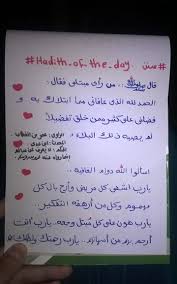 #Hadith_of_the_day #سنن
قال ﷺ : من رأى مبتلى فقال :
الحمد لله الذي عافاني مما ابتلاك به و
فضلني على كثير ممن خلق تفضيلا
لم يصبه ذلك البلاء
الراوي : عمر بن الخطاب
اسألوا الله دوام العافيه ..
يارب اشفي كل مريض وأرح بال كل
مهموم وكل من أرهقه التفكير
يارب هون على كل مبتلى وجعه . يارب أنت
أرحم بهم من أنفسهم .. يارب رحمتك